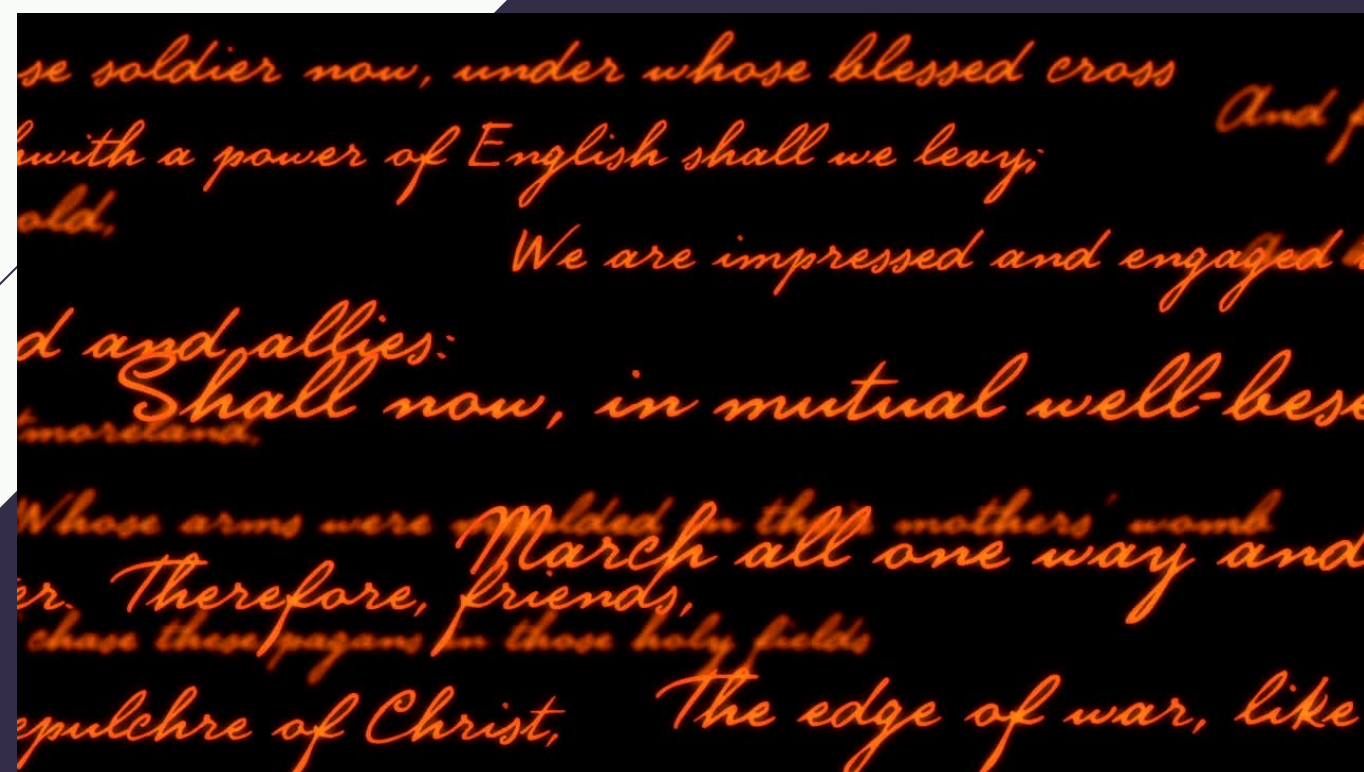 se soldier now, under whose blessed cross
And
hwith a power of English shall we levy;
old,
We are impressed and engaged
d and allies:
Shall now, in mutual well-bese
tmoreland,
Whose arms were moulded in their mothers' womb
March all one way and
er. Therefore, friends,
chase these pagans in those holy fields
epulchre of Christ,
The edge of war, like